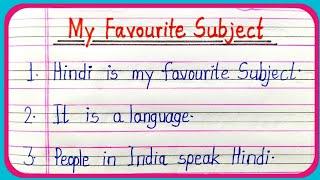 My Favourite Subject
1. Hindi is my favourite Subject.
2. It is a language.
3. People in India speak Hindi.